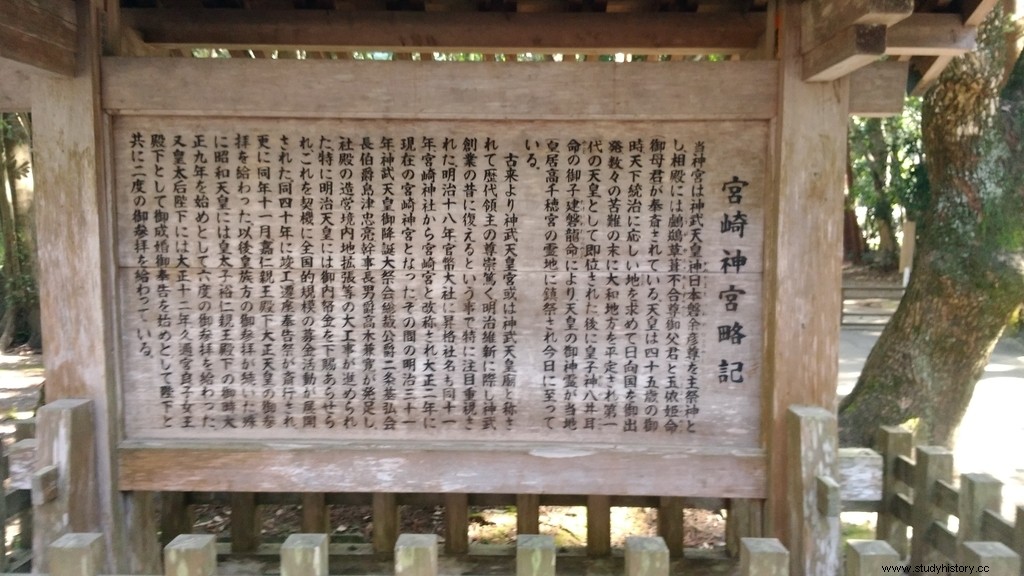 宮崎神宮略記
当神宮は神武天皇神日本磐余彦尊を主祭神と
し相殿には鸕鶿草葺不合尊御父君と玉依姫命
御母君が奉斎されている天皇は四十五歳の御
時天下統治に応しい地を求めて日向国を御出
発数々の苦難の末に大和地方を平定され第一
代の天皇として即位された後に皇子神八井耳
命の御子建磐龍命により天皇の御神霊が当地
皇居高千穂宮の霊地に鎮祭され今日に至って
いる。
古来より神武天皇宮或は神武天皇廟と称さ
れて歴代領主の尊崇篤く明治維新に際し神武
創業の昔に復えるという事で特に注目重視さ
れた明治十八年官幣大社に昇格社名も同十一
年宮崎神社から宮崎宮と改称され大正二年に
現在の宮崎神宮となったその間の明治三十一
年神武天皇御降誕大祭会総裁公爵二条基弘会
長伯爵島津忠亮幹事長男爵高木兼寛が発足し
社殿の造営境内地拡張等の大工事が進められ
た特に明治天皇には御内帑金を下賜あらせら
れこれを契機に全国的規模の募金活動が展開
された同四十年に竣工遷座奉告祭が斎行され
更に同年十一月嘉仁親王殿下大正天皇の御参
拝を給わった以後皇族方の御参拝が続いた殊
に昭和天皇には皇太子裕仁親王殿下の御時大
正九年を始めとして六度の御参拝を給わった
又皇太后陛下には大正十二年久邇宮良子女王
殿下として御成婚御奉告を始めとして陛下と
共に二度の御参拝を給わっている。
www.studyhistory.cc